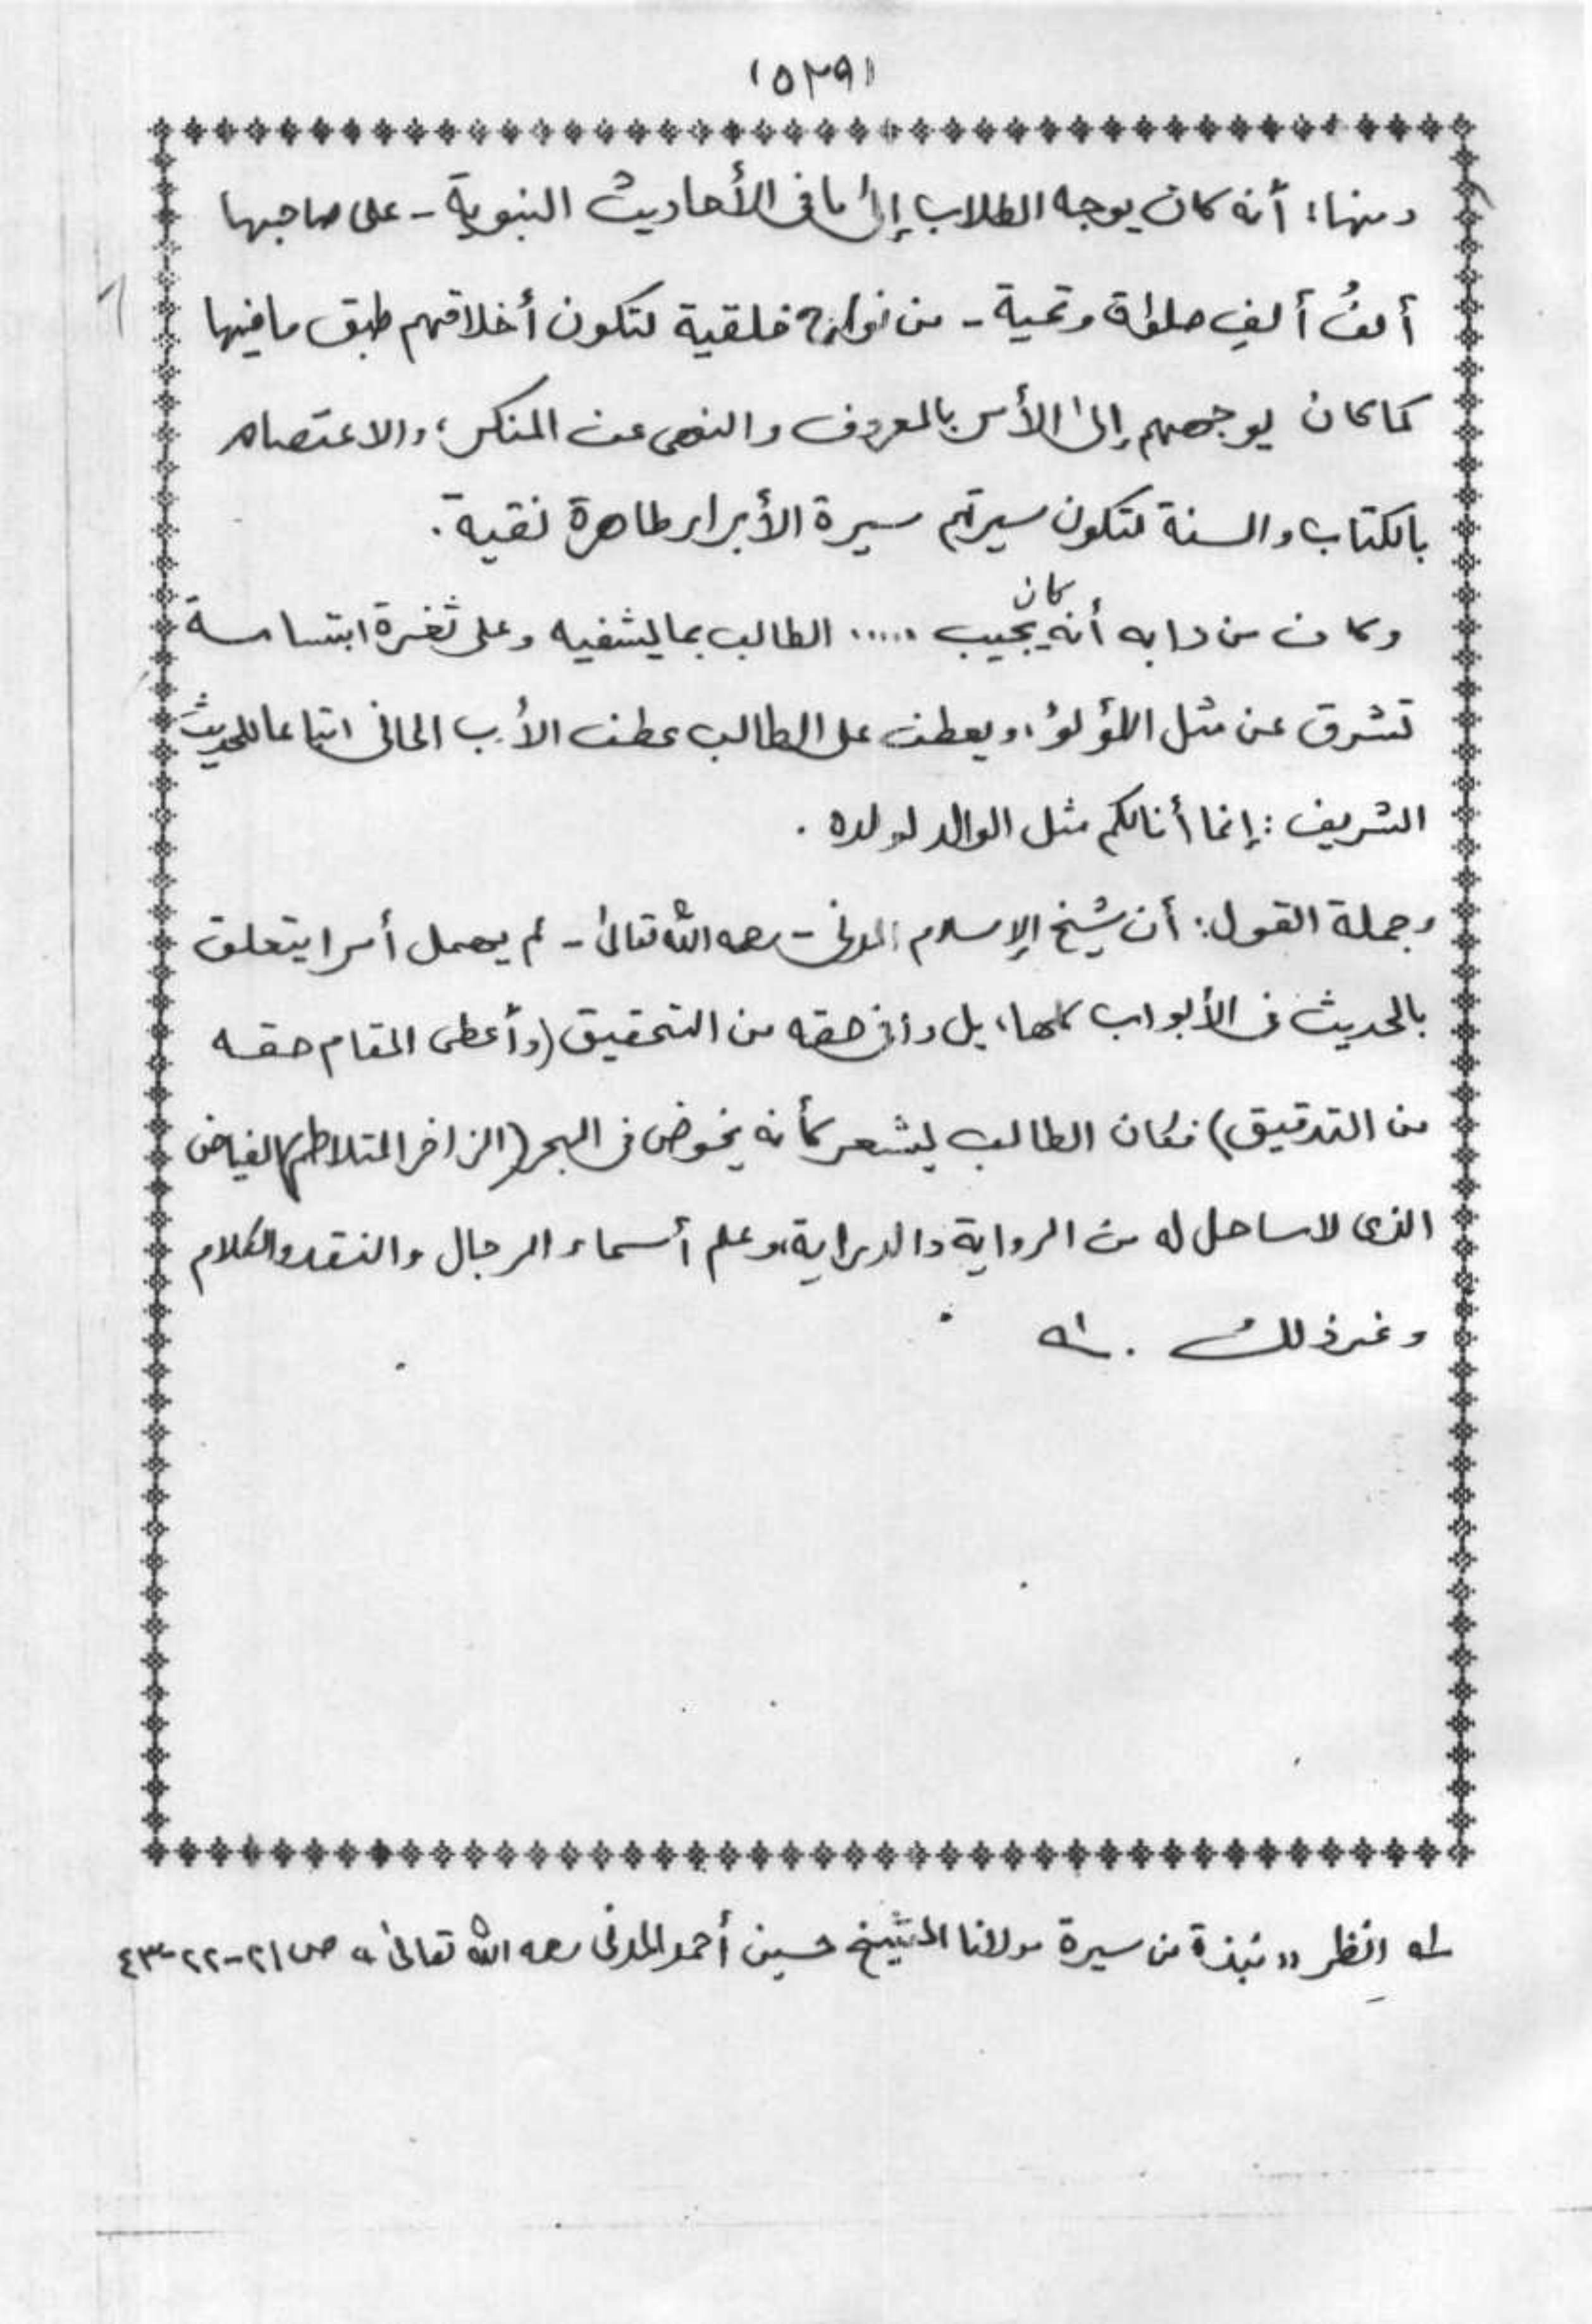 (٥٢٩)
ومنها: أنه كان يوجه الطلاب إلى ما في الأحاديث النبوية - على صاحبها
ألفُ ألفِ صلوٰة وتحية - من خلقية لتكون أخلاقهم طبق ما فيها
كما كان يوجههم إلى الأمر بالمعروف والنهى عن المنكر، والاعتصام
بالكتاب والسنة لتكون سيرتهم سيرة الأبرار طاهرة نقية.
وكان من دابه أنه كان يجيب ..... الطالب بما يشفيه وعلى ثغرة ابتسامة
تشرق عن مثل اللؤلؤ، ويعطف على الطالب عطف الأب الحانى اتباعا للحديث
الشريف: إنما أنا لكم مثل الوالد لولده.
وجملة القول: أن شيخ الإسلام المدنى - رحمه الله تعالىٰ - لم يهمل أمرا يتعلق
بالحديث فى الأبواب كلها، بل وافى حقه من التحقيق (وأعطى المقام حقه
من التدقيق) فكان الطالب يشعر كأنه يخوض فى البحر (الزاخر المتلاطم) الفياض
الذى لا ساحل له من الرواية والدراية، وعلم أسماء الرجال والنقد والكلام
وغير ذلك. ١ه
١ه انظر «نبذة من سيرة مولانا الشيخ حسين أحمد المدنى رحمه الله تعالىٰ» ص ٢١-٢٢-٤٣